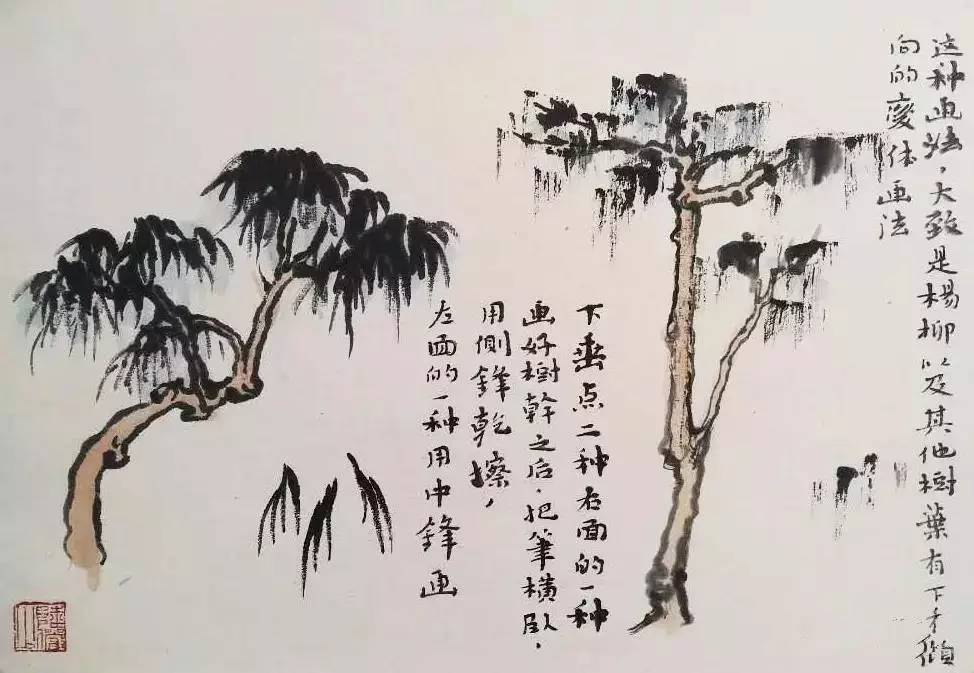 这种画法，大致是楊柳以及其他樹葉有下傾
向的變体画法
下垂点二种右面的一种
画好樹幹之后，把筆橫臥，
用側鋒乾擦，
左面的一种用中鋒画